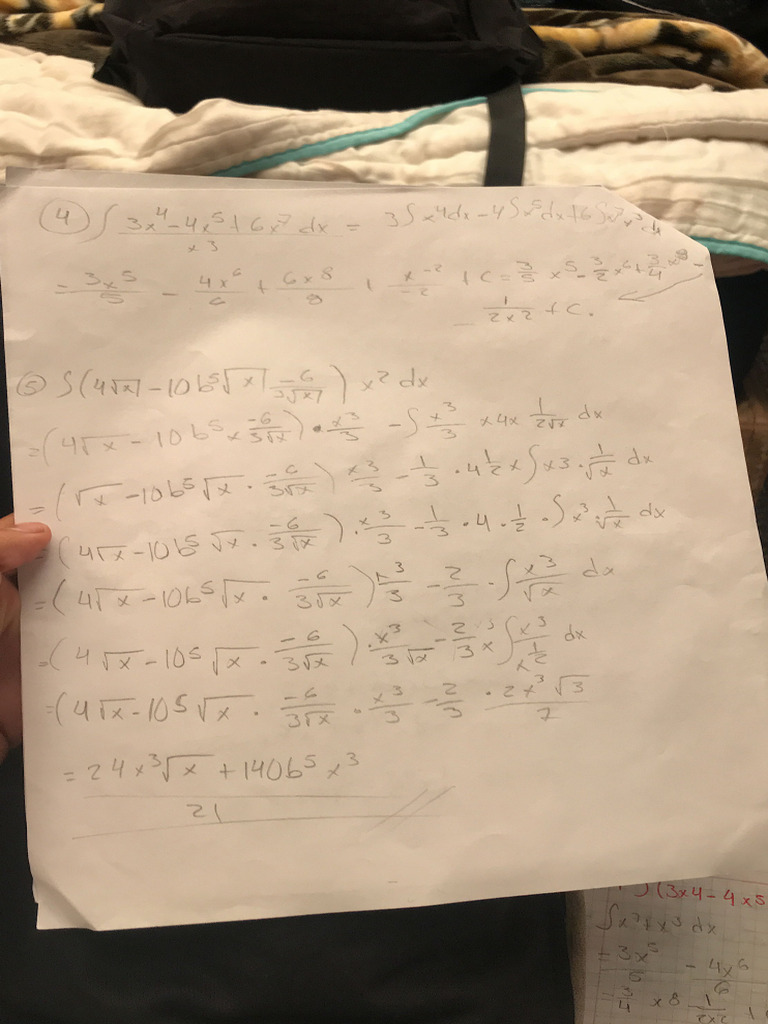 ④ ∫ 3x⁴-4x⁵+6x⁷ dx / x³ = 3∫x⁴dx-4∫x⁵dx+6∫x⁷
= 3x⁵/5 - 4x⁶/6 + 6x⁸/8 + x⁻²/-2 + C = 3/5 x⁵ - 3/2 x⁶ + 3/4 x⁸ -
1/2x2 + C.
⑤ ∫(4√x - 10b⁵√x -6/3√x) x² dx
= (4√x - 10b⁵ x -6/3√x) • x³/3 - ∫ x³/3 x4x 1/2√x dx
= (√x - 10b⁵√x · -6/3√x) x3/3 - 1/3 • 4 1/2 x ∫x3 · 1/√x dx
= (4√x - 10b⁵ √x · -6/3√x) · x³/3 - 1/3 • 4 · 1/2 · ∫x³ · 1/√x dx
= (4√x - 10b⁵√x · -6/3√x) x³/3 - 2/3 · ∫ x³/√x dx
= (4√x - 10⁵ √x · -6/3√x) · x³/3√x - 2/3 x ∫ x³/x^1/2 dx
= (4√x - 10⁵√x · -6/3√x · x³/3 - 2/3 · 2x³√3/7
= 24x³√x + 140b⁵x³ / 21
∫(3x4-4x5
∫x⁷+x³ dx
= 3x⁵/5 - 4x⁶/6
= 3/4 x8 1/2x2